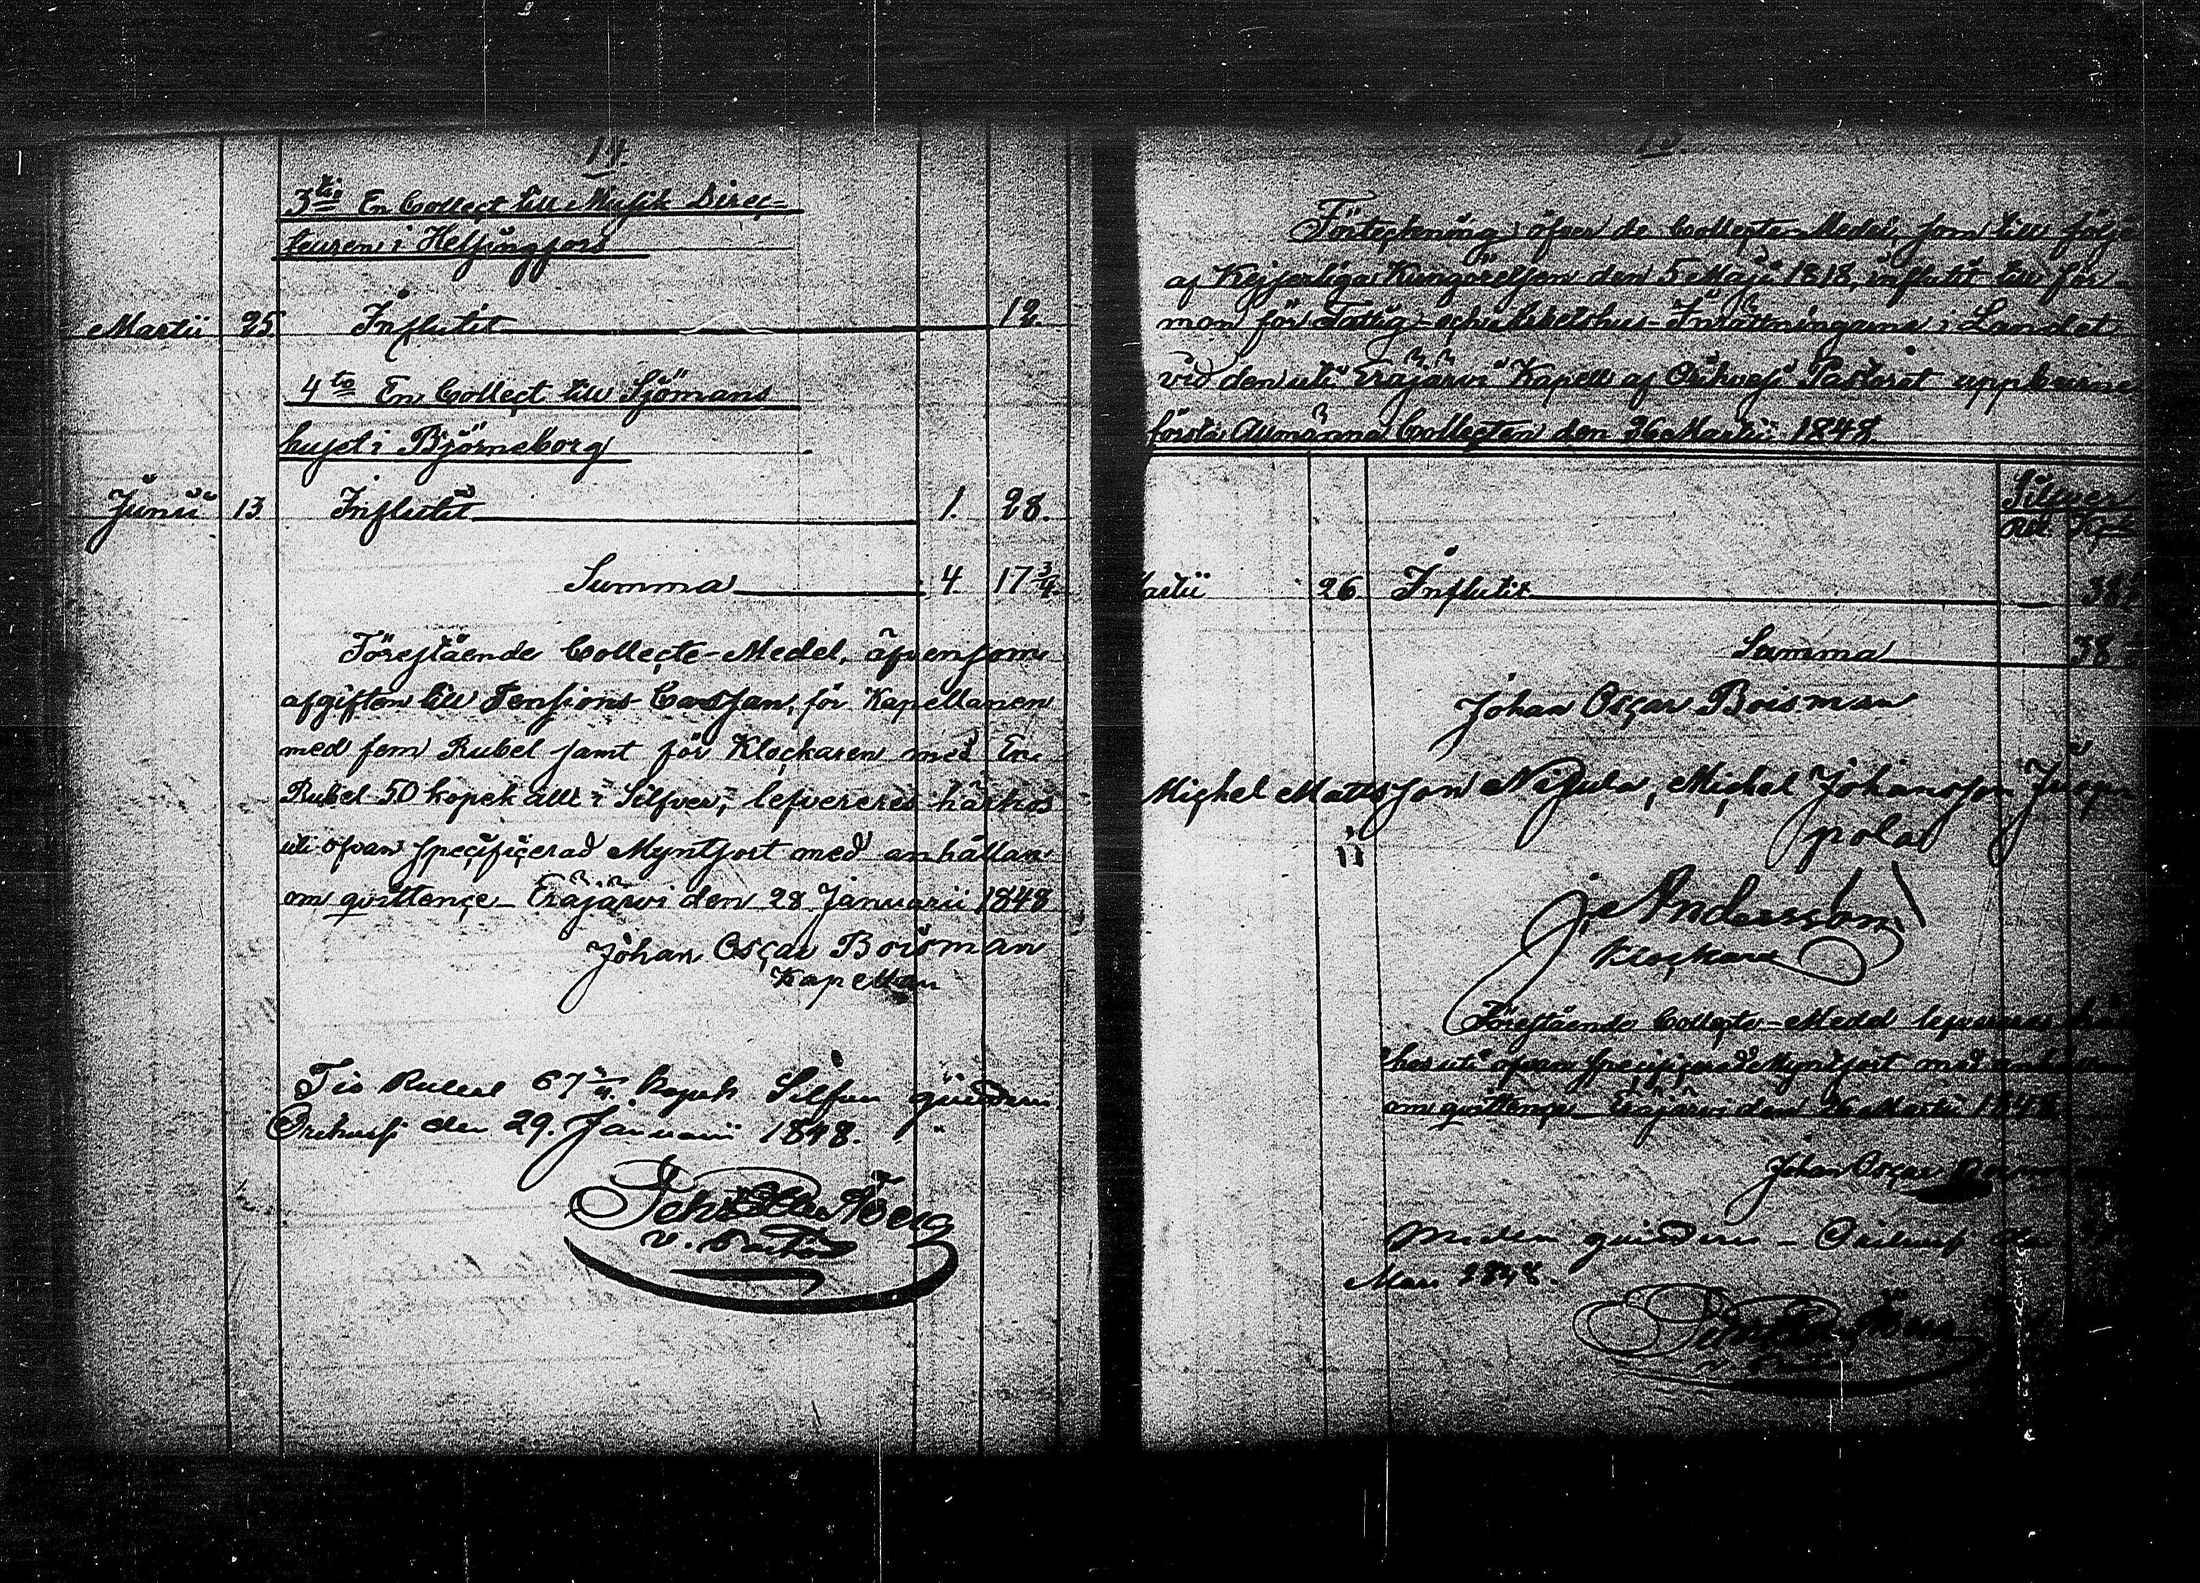 14.
3tio En Collect till Musik Direc-
teuren i Helsingfors
Martii 25. Influtit 12.
4to En Collect till Sjömans
huset i Björneborg
Junii 13. Influtit 1. 28.
Summa 4. 17 3/4.
Förestående Collecte-Medel, äfvensom
afgiften till Pensions-Cassan, för Kapellanen
med fem Rubel samt för Klockaren med En
Rubel 50 kopek allt i Silfver, lefvereres härhos
uti ofvan specificerad Myntsort med anhållan
om qvittence. Eräjärvi den 28 Januarii 1848
Johan Oscar Boisman
Kapellan
Tio Rubel 67 kopek Silfver
den 29. Januarii 1848.
v. Pastor
15.
Förteckning öfver de Collecte-Medel, som till följe
af Kejserliga Kungörelsen den 5 Maji 1818, influtit till för-
mon för Fattig- och Arbetshus-Inrättningarne i Landet
vid den uti Eräjärvi Kapell af Orihvesi Pastorat uppburne
första Allmänna Collecten den 26 Martii 1848.
Silfver
Rub. Kop.
Martii 26. Influtit 38
Summa 38
Johan Oscar Boisman
Michel Mattsson Nihula, Michel Johansson
pola
Andersson
Klockare
Förestående Collecte-Medel lefvereres här
hos uti ofvan specificerad Myntsort med anhållan
om qvittence. Eräjärvi den 26 Martii 1848.
Johan Oscar Boisman
Mars 1848.
v. Pastor